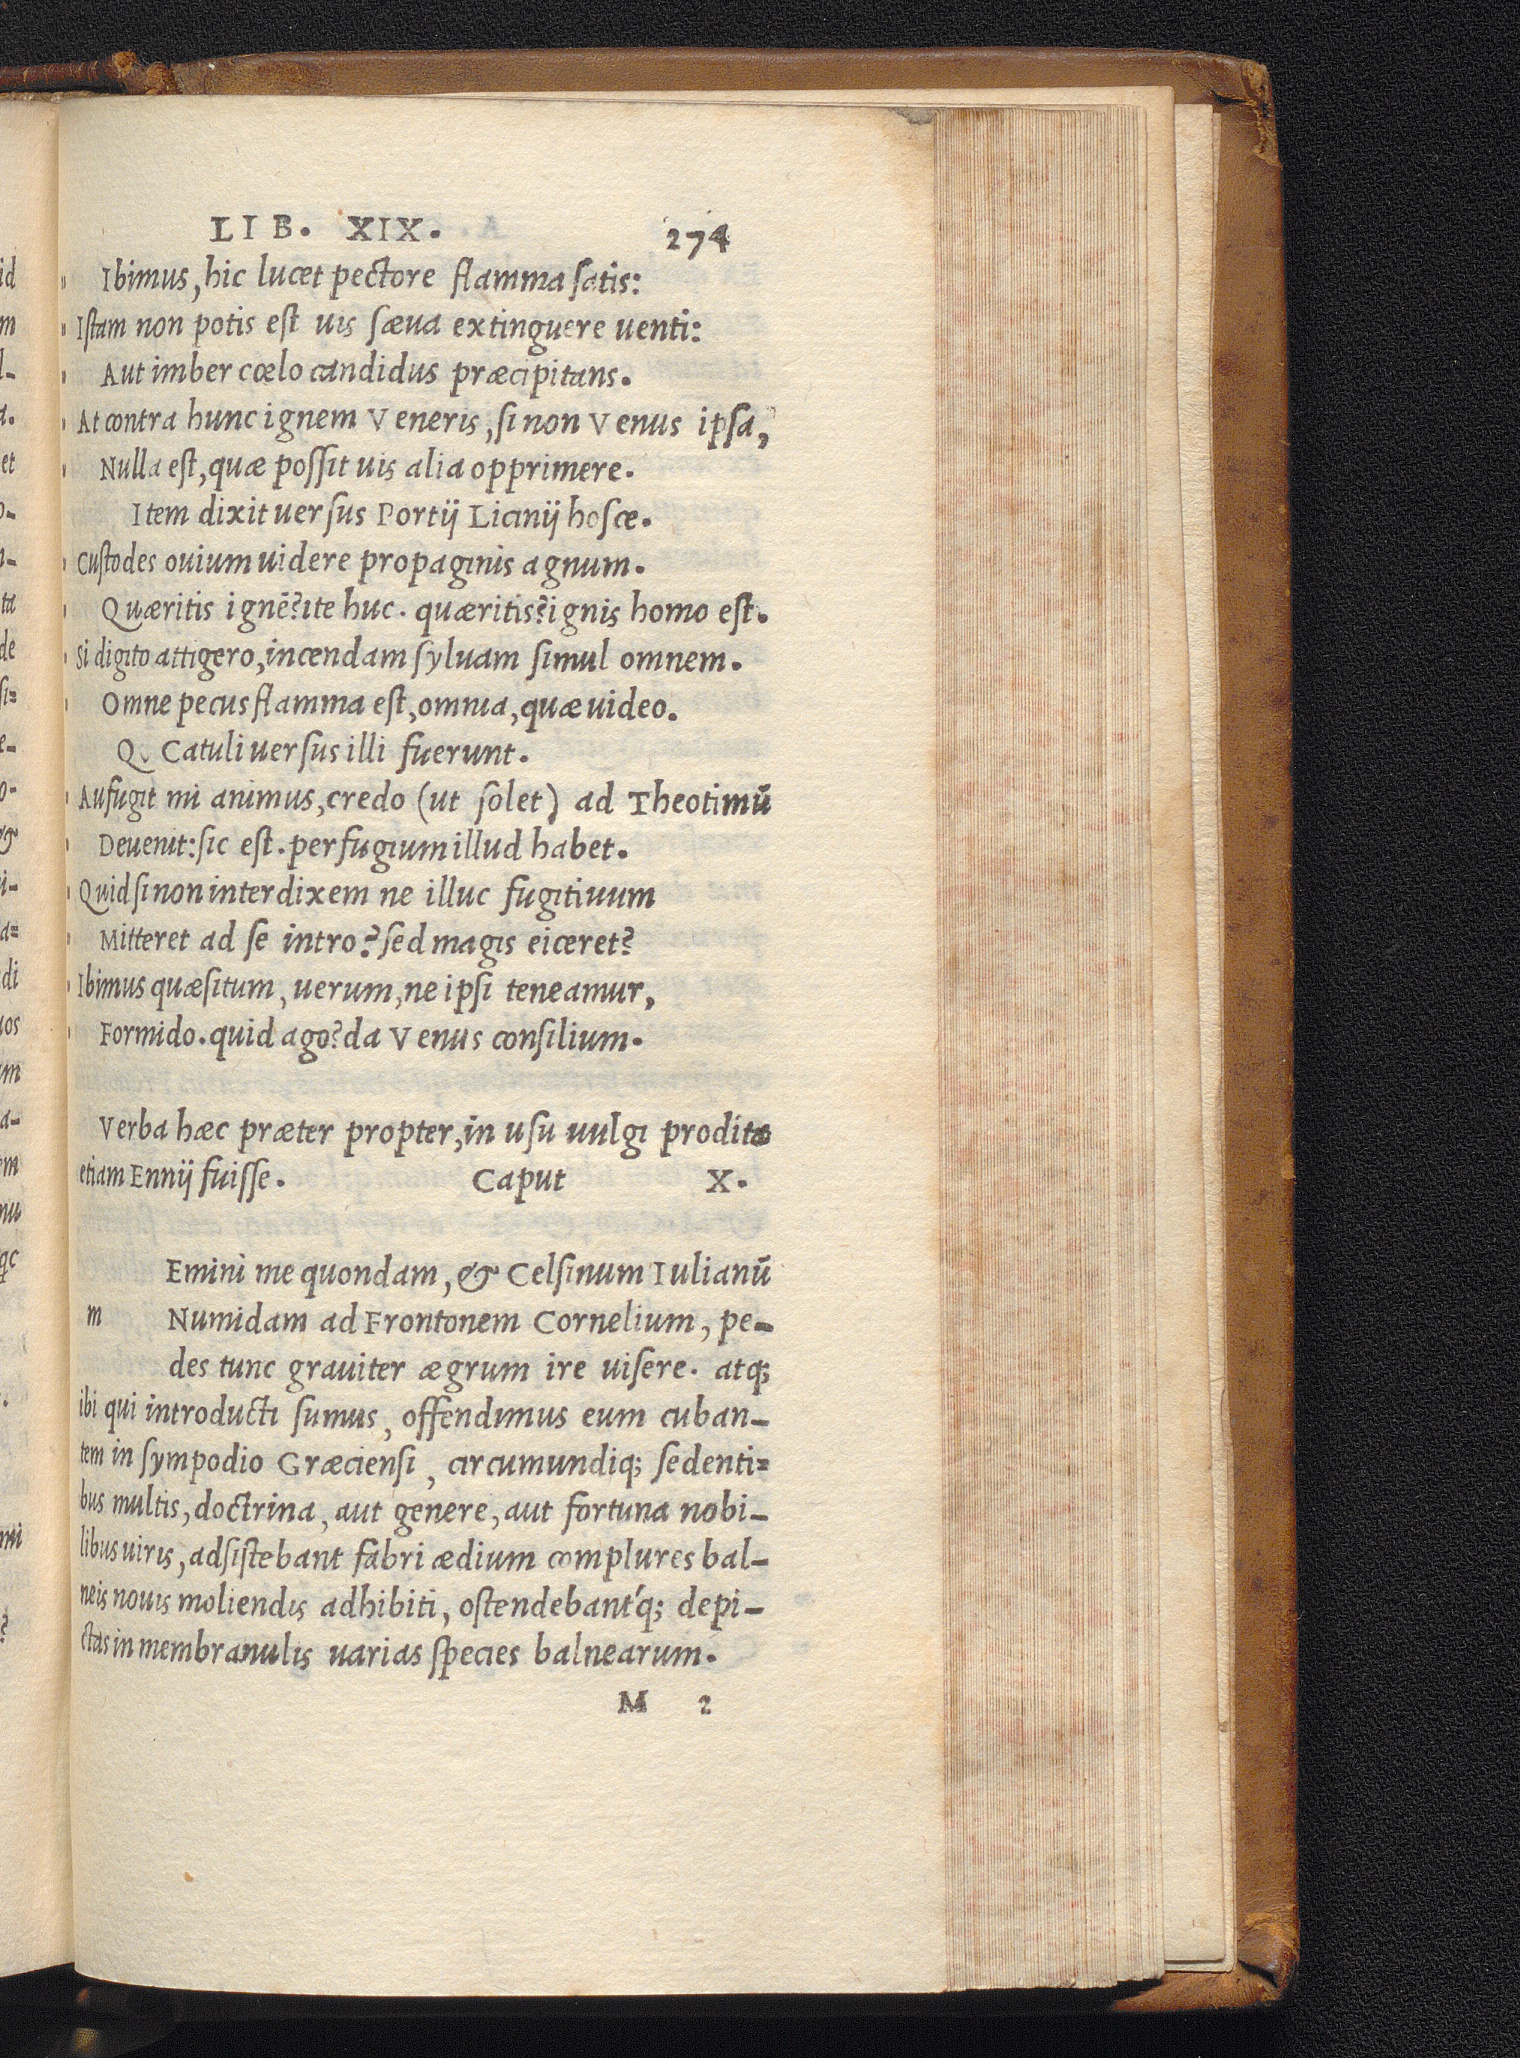 LIB. XIX. 274
Ibimus, hic lucet pectore flamma ſatis:
Iſtam non potis eſt uis ſæua extinguere uenti:
Aut imber cœlo candidus præcipitans.
At contra hunc ignem Veneris, ſi non Venus ipſa,
Nulla eſt, quæ poſſit uis alia opprimere.
Item dixit uerſus Portij Licinij hoſce.
Cuſtodes ouium uidere propaginis agnum.
Quæritis ignē? ite huc. quæritis? ignis homo eſt.
Si digito attigero, incendam ſyluam ſimul omnem.
Omne pecus flamma eſt, omnia, quæ uideo.
Q. Catuli uerſus illi fuerunt.
Aufugit mi animus, credo (ut ſolet) ad Theotimū
Deuenit: ſic eſt. perfugium illud habet.
Quid ſi non interdixem ne illuc fugitiuum
Mitteret ad ſe intro? ſed magis eiceret?
Ibimus quæſitum, uerum, ne ipſi teneamur,
Formido. quid ago? da Venus conſilium.
Verba hæc præter propter, in uſu uulgi prodita
etiam Ennij fuiſſe. Caput X.
Emini me quondam, & Celſinum Iulianū
m Numidam ad Frontonem Cornelium, pe-
des tunc grauiter ægrum ire uiſere. atq;
ibi qui introducti ſumus, offendimus eum cuban-
tem in ſympodio Græcienſi, circumundiq; ſedenti=
bus multis, doctrina, aut genere, aut fortuna nobi-
libus uiris, adſiſtebant fabri ædium complures bal-
neis nouis moliendis adhibiti, oſtendebant'q; depi-
ctas in membranulis uarias ſpecies balnearum.
M 2